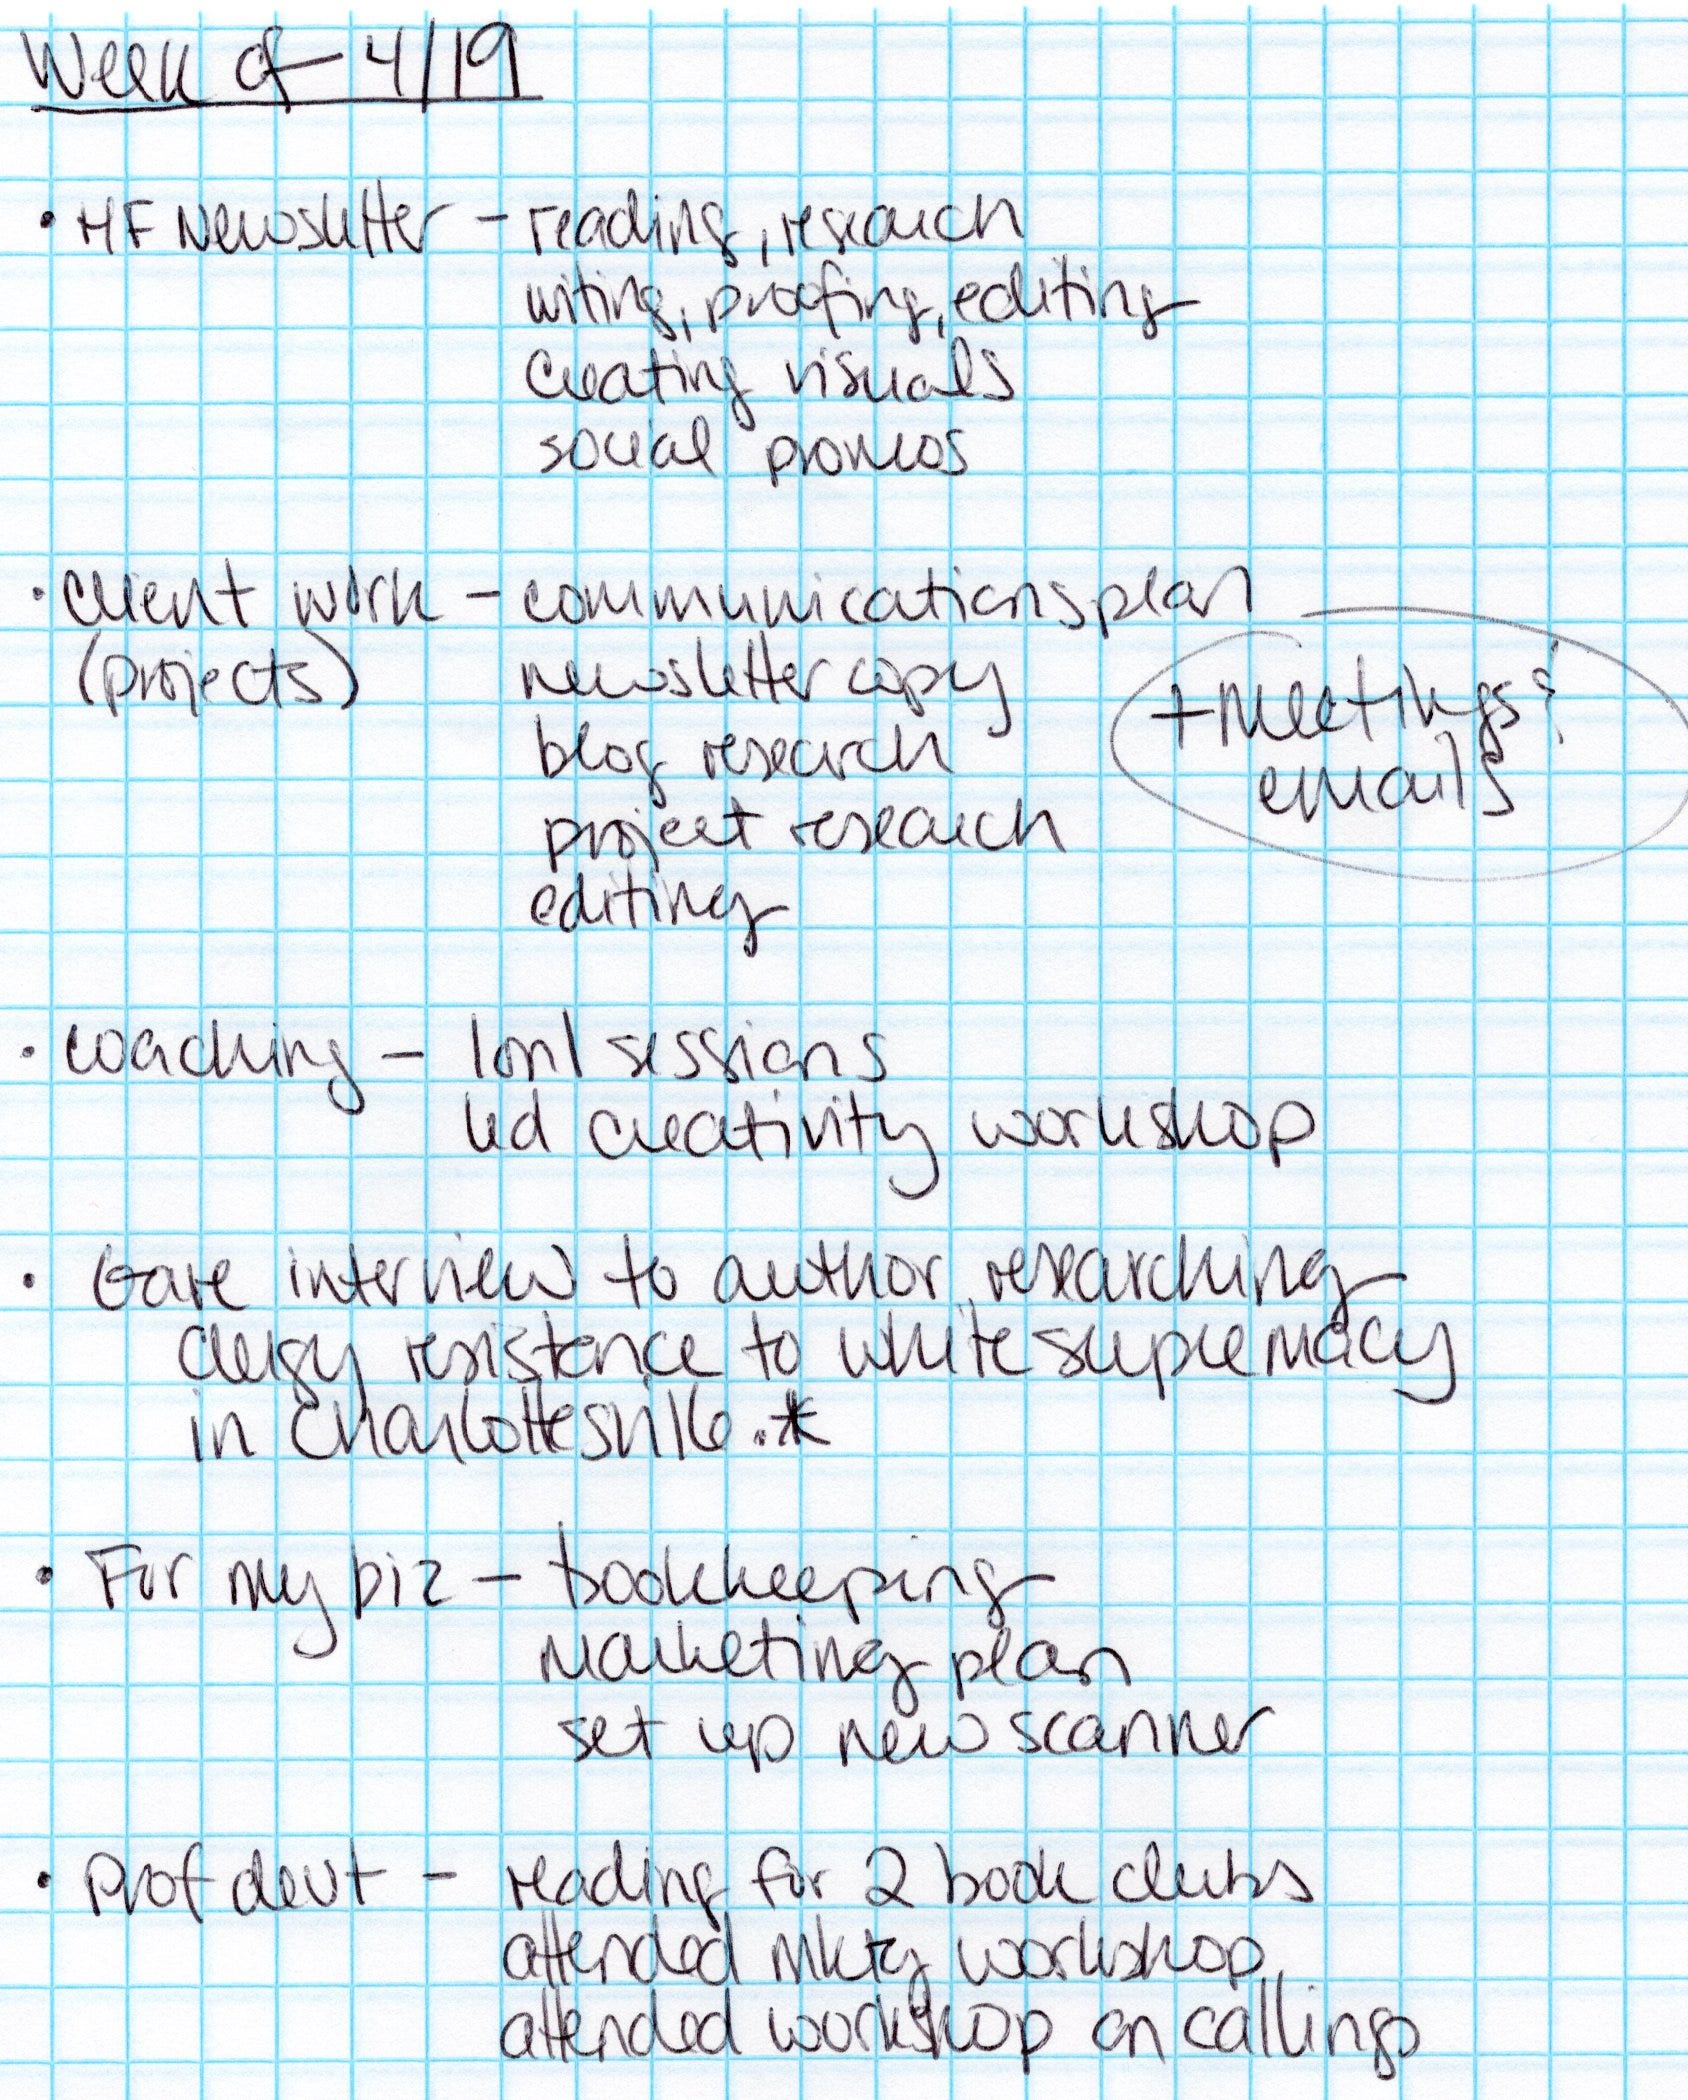 Week of 4/19
• HF Newsletter - reading, research
writing, proofing, editing
creating visuals
social promos
• Client work - communications plan
(projects) newsletter copy
+ meetings &
blog research
emails
project research
editing
• Coaching - 1on1 sessions
led creativity workshop
• Gave interview to author researching
clergy resistance to white supremacy
in Charlottesville. *
• For my biz - bookkeeping
marketing plan
set up new scanner
• Prof devt - reading for 2 book clubs
attended mktg workshop
attended workshop on callings